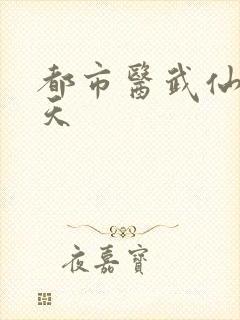 都市醫武仙
天
夜嘉寶